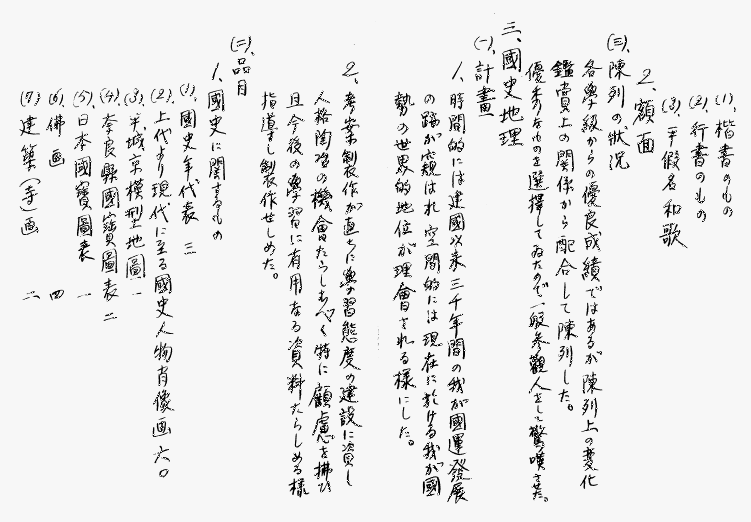 (1)、楷書のもの
(2)、行書のもの
(3)、平假名和歌
2、額面
(三)、陳列の狀況
各學級からの優良成績ではあるが陳列上の変化
鑑賞上の関係から配合して陳列した。
優秀なものを選擇してゐたので一般参觀人をして驚嘆させた。
三、國史地理
(一)、計畫
1、時間的には建國以来三千年間の我が國運發展
の跡が窺はれ空間的には現在に於ける我が國
勢の世界的地位が理會される様にした。
2、考案製作が直ちに學習態度の建設に資し
人格陶冶の機會たらしむべく特に顧慮を拂ひ
且今後の學習に有用なる資料たらしめる様
指導し製作せしめた。
(二)、品目
1、國史に関するもの
(1)、國史年代表 三
(2)、上代より現代に至る國史人物肖像画 六〇
(3)、平城京模型地圖 一
(4)、奈良縣國寶圖表 二
(5)、日本國寶圖表 一
(6)、佛画 四
(7)、建築(寺)画 二